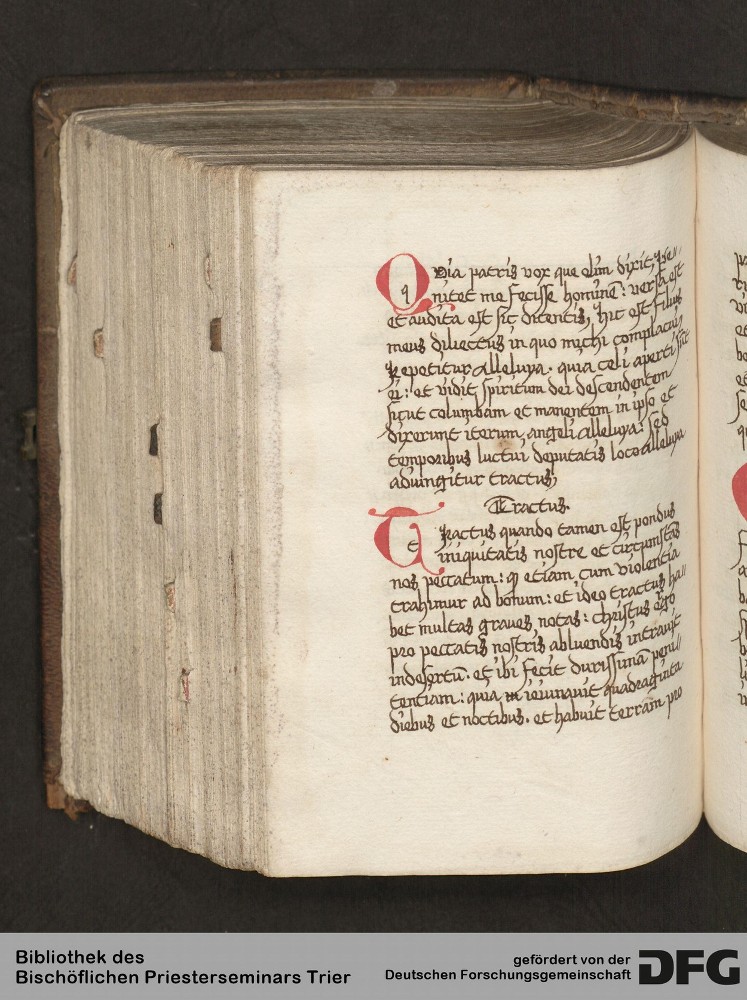 Quia patris vox que olim dixit, Pe-
nitet me fecisse hominē: versa est
et audita est sic dicentis, hic est filius
meus dilectus in quo michi complacui,
Repetitur alleluya. quia celi aperti sūt
ei: et vidit spiritum dei descendentem
sicut columbam et manentem in ipso et
dixerunt iterum angeli alleluya: sed
temporibus luctui deputatis loco alleluya
adiungitur tractus,
Tractus.
Tractus quando tamen est pondus
iniquitatis nostre et circumstās
nos peccatum: q etiam cum violentia
trahimur ad bonum: et ideo tractus ha-
bet multas graues notas: christus ergo
pro peccatis nostris abluendis intrauit
in desertū. et ibi fecit durissimā peni-
tentiam: quia ieiunauit quadraginta
diebus et noctibus. et habuit terram pro
Bibliothek des
Bischöflichen Priesterseminars Trier
gefördert von der
Deutschen Forschungsgemeinschaft
DFG